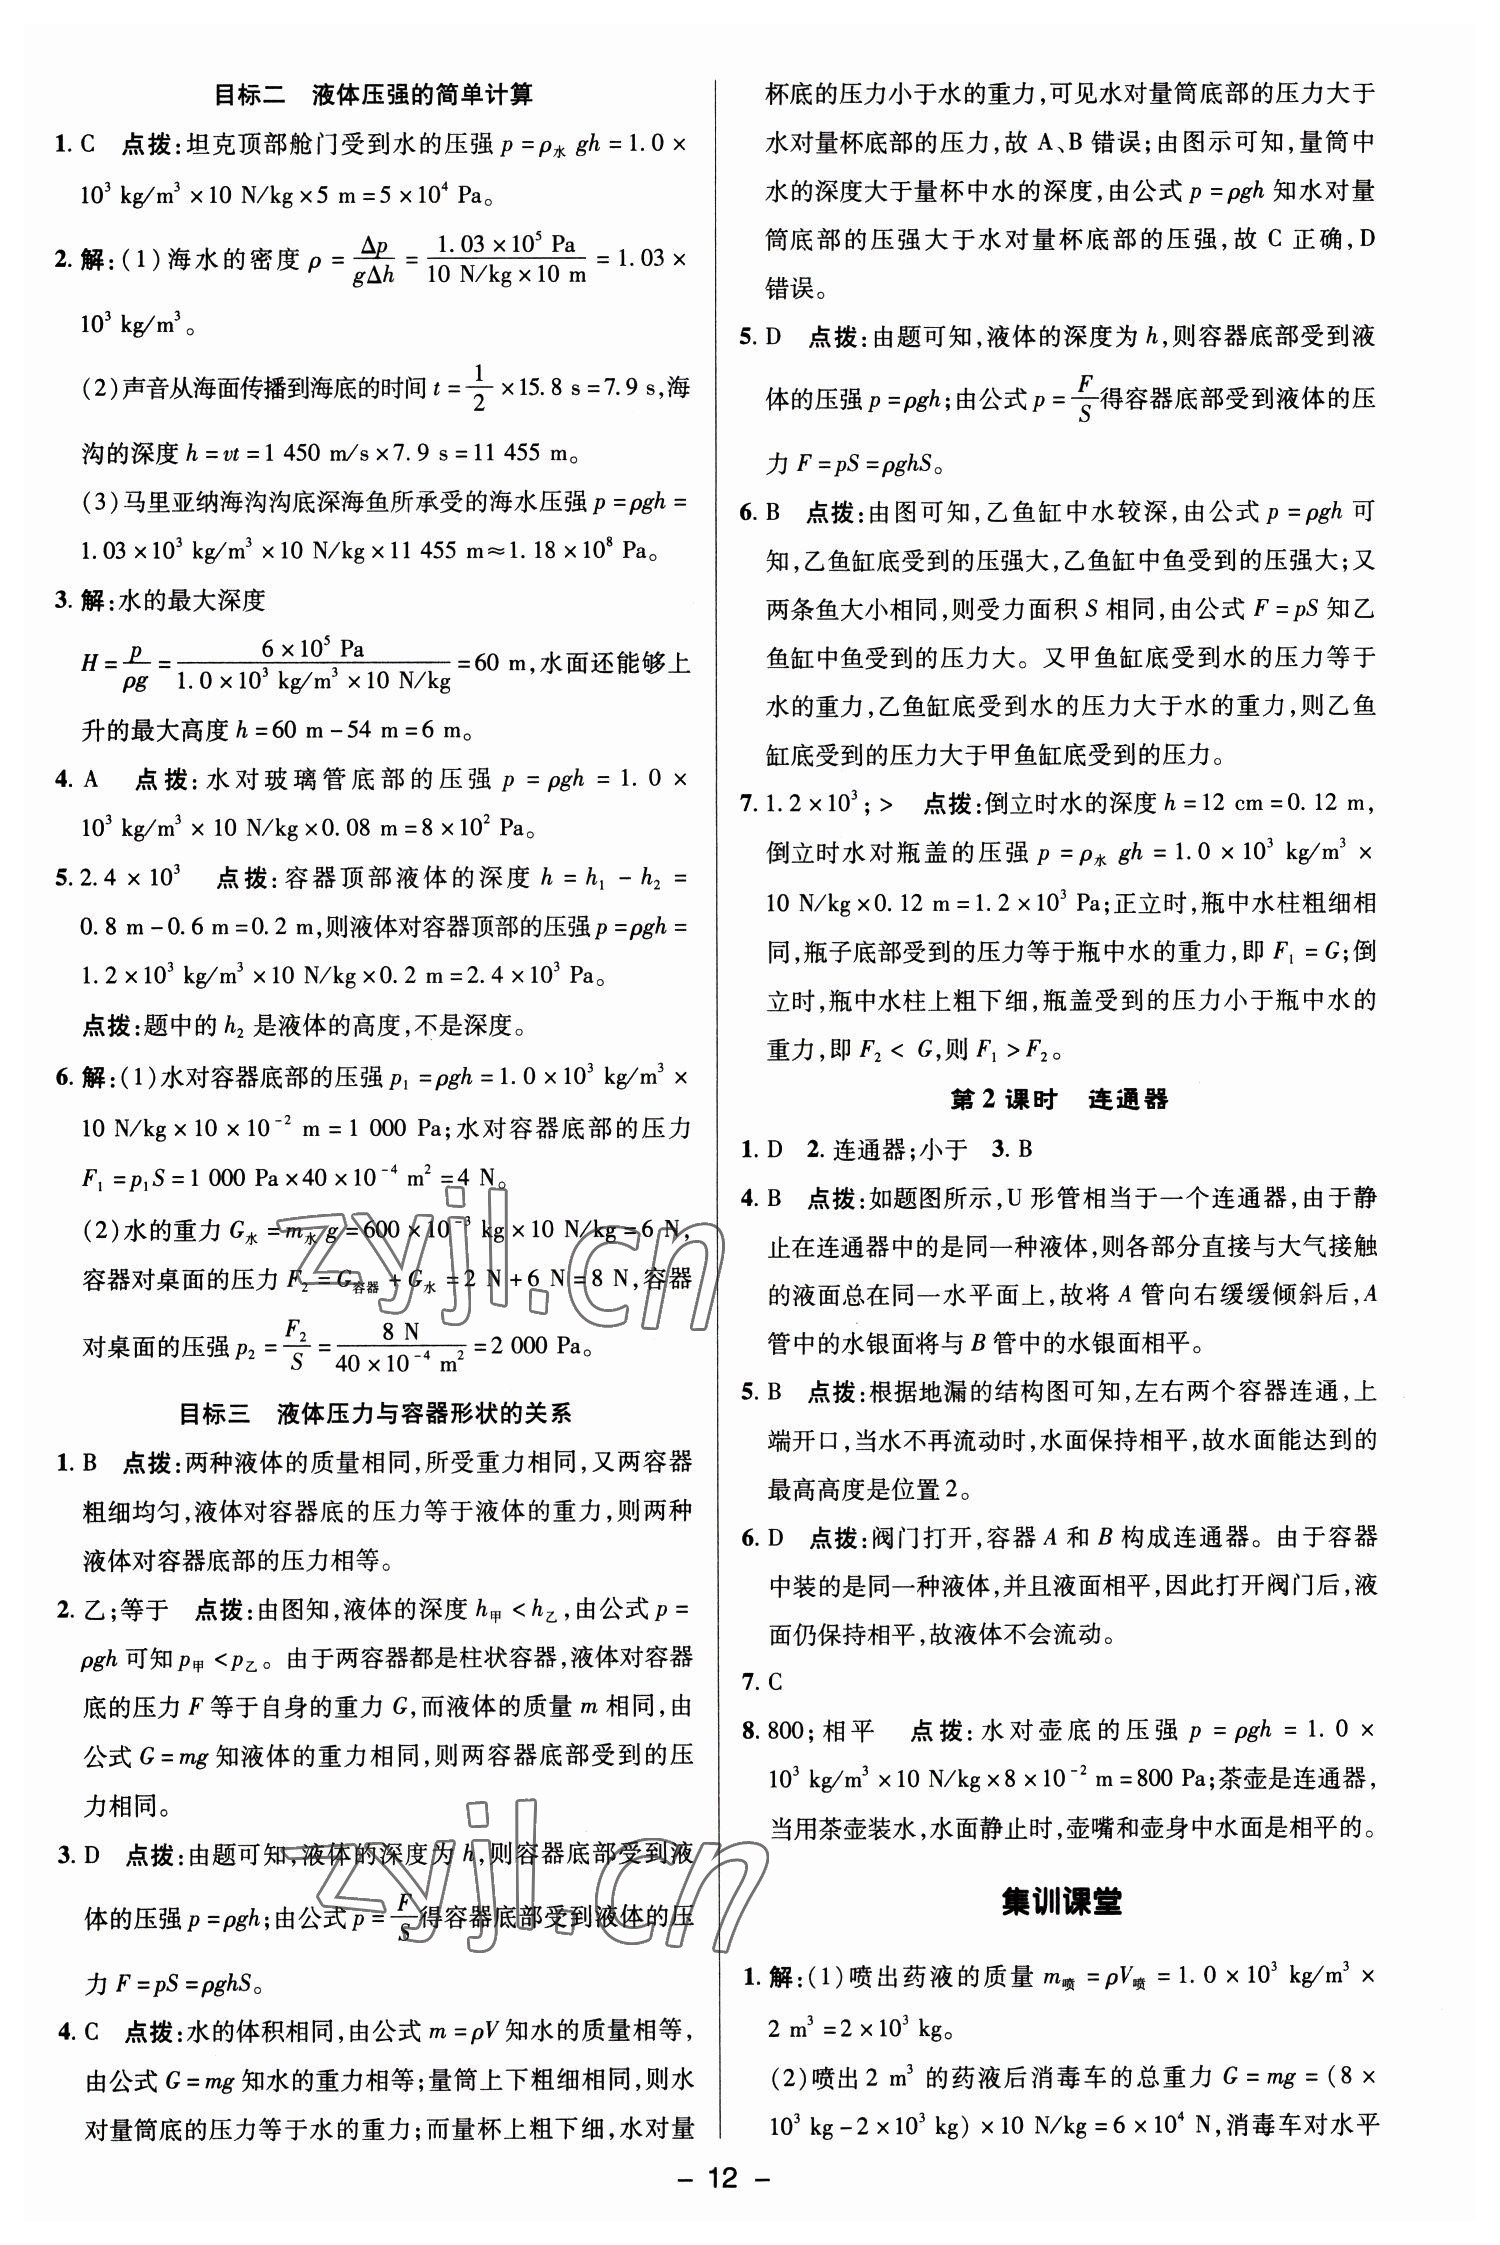 目标二　液体压强的简单计算
1. C　点拨:坦克顶部舱门受到水的压强 p = ρ水 gh = 1.0 ×
10³ kg/m³ × 10 N/kg × 5 m = 5 × 10⁴ Pa。
2. 解:(1)海水的密度 ρ = Δp/gΔh = 1.03 × 10⁵ Pa/10 N/kg × 10 m = 1.03 ×
10³ kg/m³。
(2)声音从海面传播到海底的时间 t = 1/2 × 15.8 s = 7.9 s,海
沟的深度 h = vt = 1 450 m/s × 7.9 s = 11 455 m。
(3)马里亚纳海沟沟底深海鱼所承受的海水压强 p = ρgh =
1.03 × 10³ kg/m³ × 10 N/kg × 11 455 m ≈ 1.18 × 10⁸ Pa。
3. 解:水的最大深度
H = p/ρg = 6 × 10⁵ Pa/1.0 × 10³ kg/m³ × 10 N/kg = 60 m,水面还能够上
升的最大高度 h = 60 m - 54 m = 6 m。
4. A　点拨:水对玻璃管底部的压强 p = ρgh = 1.0 ×
10³ kg/m³ × 10 N/kg × 0.08 m = 8 × 10² Pa。
5. 2.4 × 10³　点拨:容器顶部液体的深度 h = h₁ - h₂ =
0.8 m - 0.6 m = 0.2 m,则液体对容器顶部的压强 p = ρgh =
1.2 × 10³ kg/m³ × 10 N/kg × 0.2 m = 2.4 × 10³ Pa。
点拨:题中的 h₂ 是液体的高度,不是深度。
6. 解:(1)水对容器底部的压强 p₁ = ρgh = 1.0 × 10³ kg/m³ ×
10 N/kg × 10 × 10⁻² m = 1 000 Pa;水对容器底部的压力
F₁ = p₁S = 1 000 Pa × 40 × 10⁻⁴ m² = 4 N。
(2)水的重力 G水 = m水 g = 600 × 10⁻³ kg × 10 N/kg = 6 N,
容器对桌面的压力 F₂ = G容器 + G水 = 2 N + 6 N = 8 N,容器
对桌面的压强 p₂ = F₂/S = 8 N/40 × 10⁻⁴ m² = 2 000 Pa。
目标三　液体压力与容器形状的关系
1. B　点拨:两种液体的质量相同,所受重力相同,又两容器
粗细均匀,液体对容器底的压力等于液体的重力,则两种
液体对容器底部的压力相等。
2. 乙;等于　点拨:由图知,液体的深度 h甲 < h乙,由公式 p =
ρgh 可知 p甲 < p乙。由于两容器都是柱状容器,液体对容器
底的压力 F 等于自身的重力 G,而液体的质量 m 相同,由
公式 G = mg 知液体的重力相同,则两容器底部受到的压
力相同。
3. D　点拨:由题可知,液体的深度为 h,则容器底部受到液
体的压强 p = ρgh;由公式 p = F/S 得容器底部受到液体的压
力 F = pS = ρghS。
4. C　点拨:水的体积相同,由公式 m = ρV 知水的质量相等,
由公式 G = mg 知水的重力相等;量筒上下粗细相同,则水
对量筒底的压力等于水的重力;而量杯上粗下细,水对量
杯底的压力小于水的重力,可见水对量筒底部的压力大于
水对量杯底部的压力,故 A、B 错误;由图示可知,量筒中
水的深度大于量杯中水的深度,由公式 p = ρgh 知水对量
筒底部的压强大于水对量杯底部的压强,故 C 正确,D
错误。
5. D　点拨:由题可知,液体的深度为 h,则容器底部受到液
体的压强 p = ρgh;由公式 p = F/S 得容器底部受到液体的压
力 F = pS = ρghS。
6. B　点拨:由图可知,乙鱼缸中水较深,由公式 p = ρgh 可
知,乙鱼缸底受到的压强大,乙鱼缸中鱼受到的压强大;又
两条鱼大小相同,则受力面积 S 相同,由公式 F = pS 知乙
鱼缸中鱼受到的压力大。又甲鱼缸底受到水的压力等于
水的重力,乙鱼缸底受到水的压力大于水的重力,则乙鱼
缸底受到的压力大于甲鱼缸底受到的压力。
7. 1.2 × 10³; >　点拨:倒立时水的深度 h = 12 cm = 0.12 m,
倒立时水对瓶盖的压强 p = ρ水 gh = 1.0 × 10³ kg/m³ ×
10 N/kg × 0.12 m = 1.2 × 10³ Pa;正立时,瓶中水柱粗细相
同,瓶子底部受到的压力等于瓶中水的重力,即 F₁ = G;倒
立时,瓶中水柱上粗下细,瓶盖受到的压力小于瓶中水的
重力,即 F₂ < G,则 F₁ > F₂。
第 2 课时　连通器
1. D　2. 连通器;小于　3. B
4. B　点拨:如题图所示,U 形管相当于一个连通器,由于静
止在连通器中的是同一种液体,则各部分直接与大气接触
的液面总在同一水平面上,故将 A 管向右缓缓倾斜后,A
管中的水银面将与 B 管中的水银面相平。
5. B　点拨:根据地漏的结构图可知,左右两个容器连通,上
端开口,当水不再流动时,水面保持相平,故水面能达到的
最高高度是位置 2。
6. D　点拨:阀门打开,容器 A 和 B 构成连通器。由于容器
中装的是同一种液体,并且液面相平,因此打开阀门后,液
面仍保持相平,故液体不会流动。
7. C
8. 800;相平　点拨:水对壶底的压强 p = ρgh = 1.0 ×
10³ kg/m³ × 10 N/kg × 8 × 10⁻² m = 800 Pa;茶壶是连通器,
当用茶壶装水,水面静止时,壶嘴和壶身中水面是相平的。
集训课堂
1. 解:(1)喷出药液的质量 m喷 = ρV喷 = 1.0 × 10³ kg/m³ ×
2 m³ = 2 × 10³ kg。
(2)喷出 2 m³ 的药液后消毒车的总重力 G = mg = (8 ×
10³ kg - 2 × 10³ kg) × 10 N/kg = 6 × 10⁴ N,消毒车对水平
- 12 -
zyjl.cn
zyjl.cn